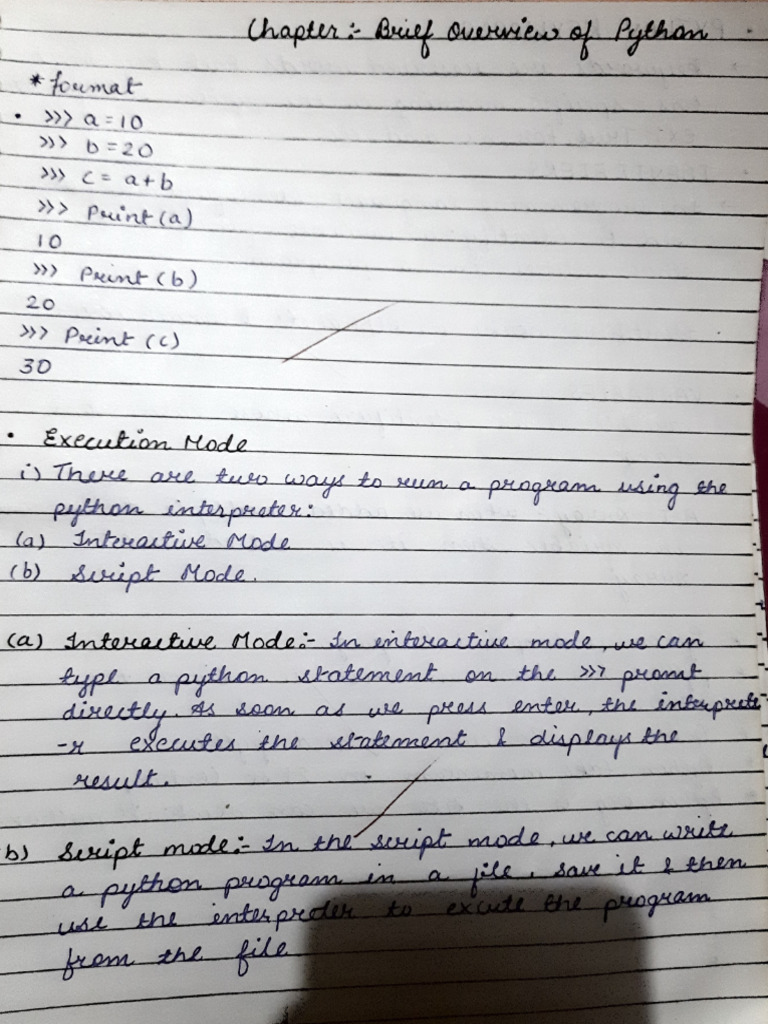 Chapter:- Brief overview of Python
* format
• >>> a=10
>>> b=20
>>> c= a+b
>>> Print (a)
10
>>> Print (b)
20
>>> Print (c)
30
• Execution Mode
i) There are two ways to run a program using the
python interpreter:
(a) Interactive Mode
(b) Script Mode.
(a) Interactive Mode:- In interactive mode, we can
type a python statement on the >>> promt
directly. As soon as we press enter, the interprete
-r executes the statement & displays the
result.
b) Script mode:- In the script mode, we can write
a python program in a file, save it & then
use the interpreter to excute the program
from the file